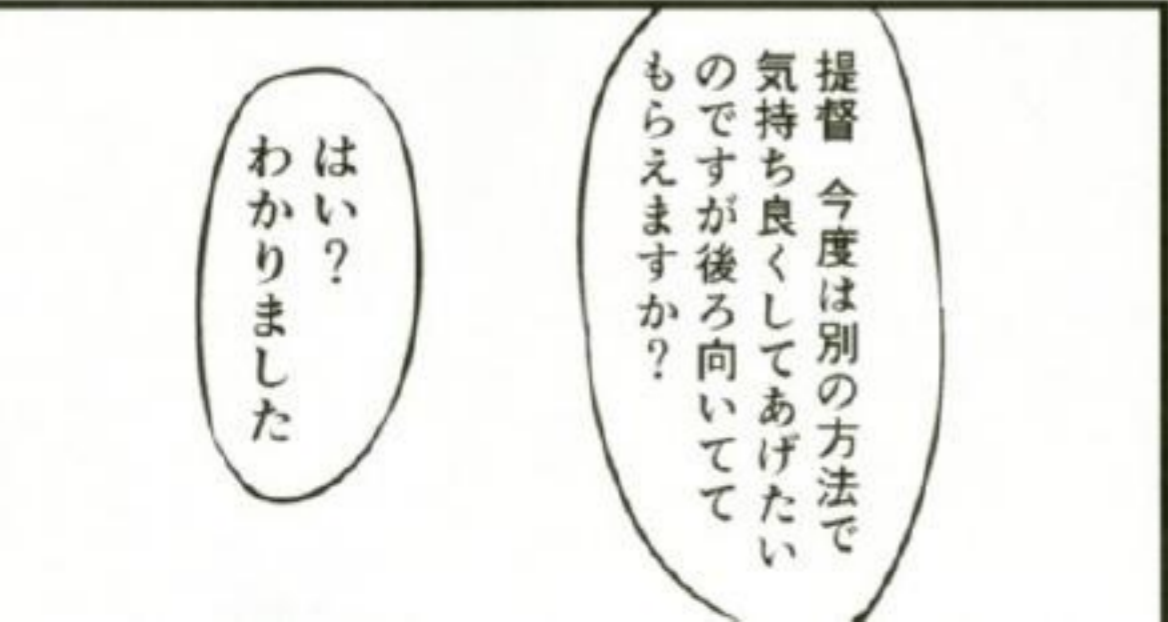 提督　今度は別の方法で
気持ち良くしてあげたい
のですが後ろ向いてて
もらえますか？
はい？
わかりました